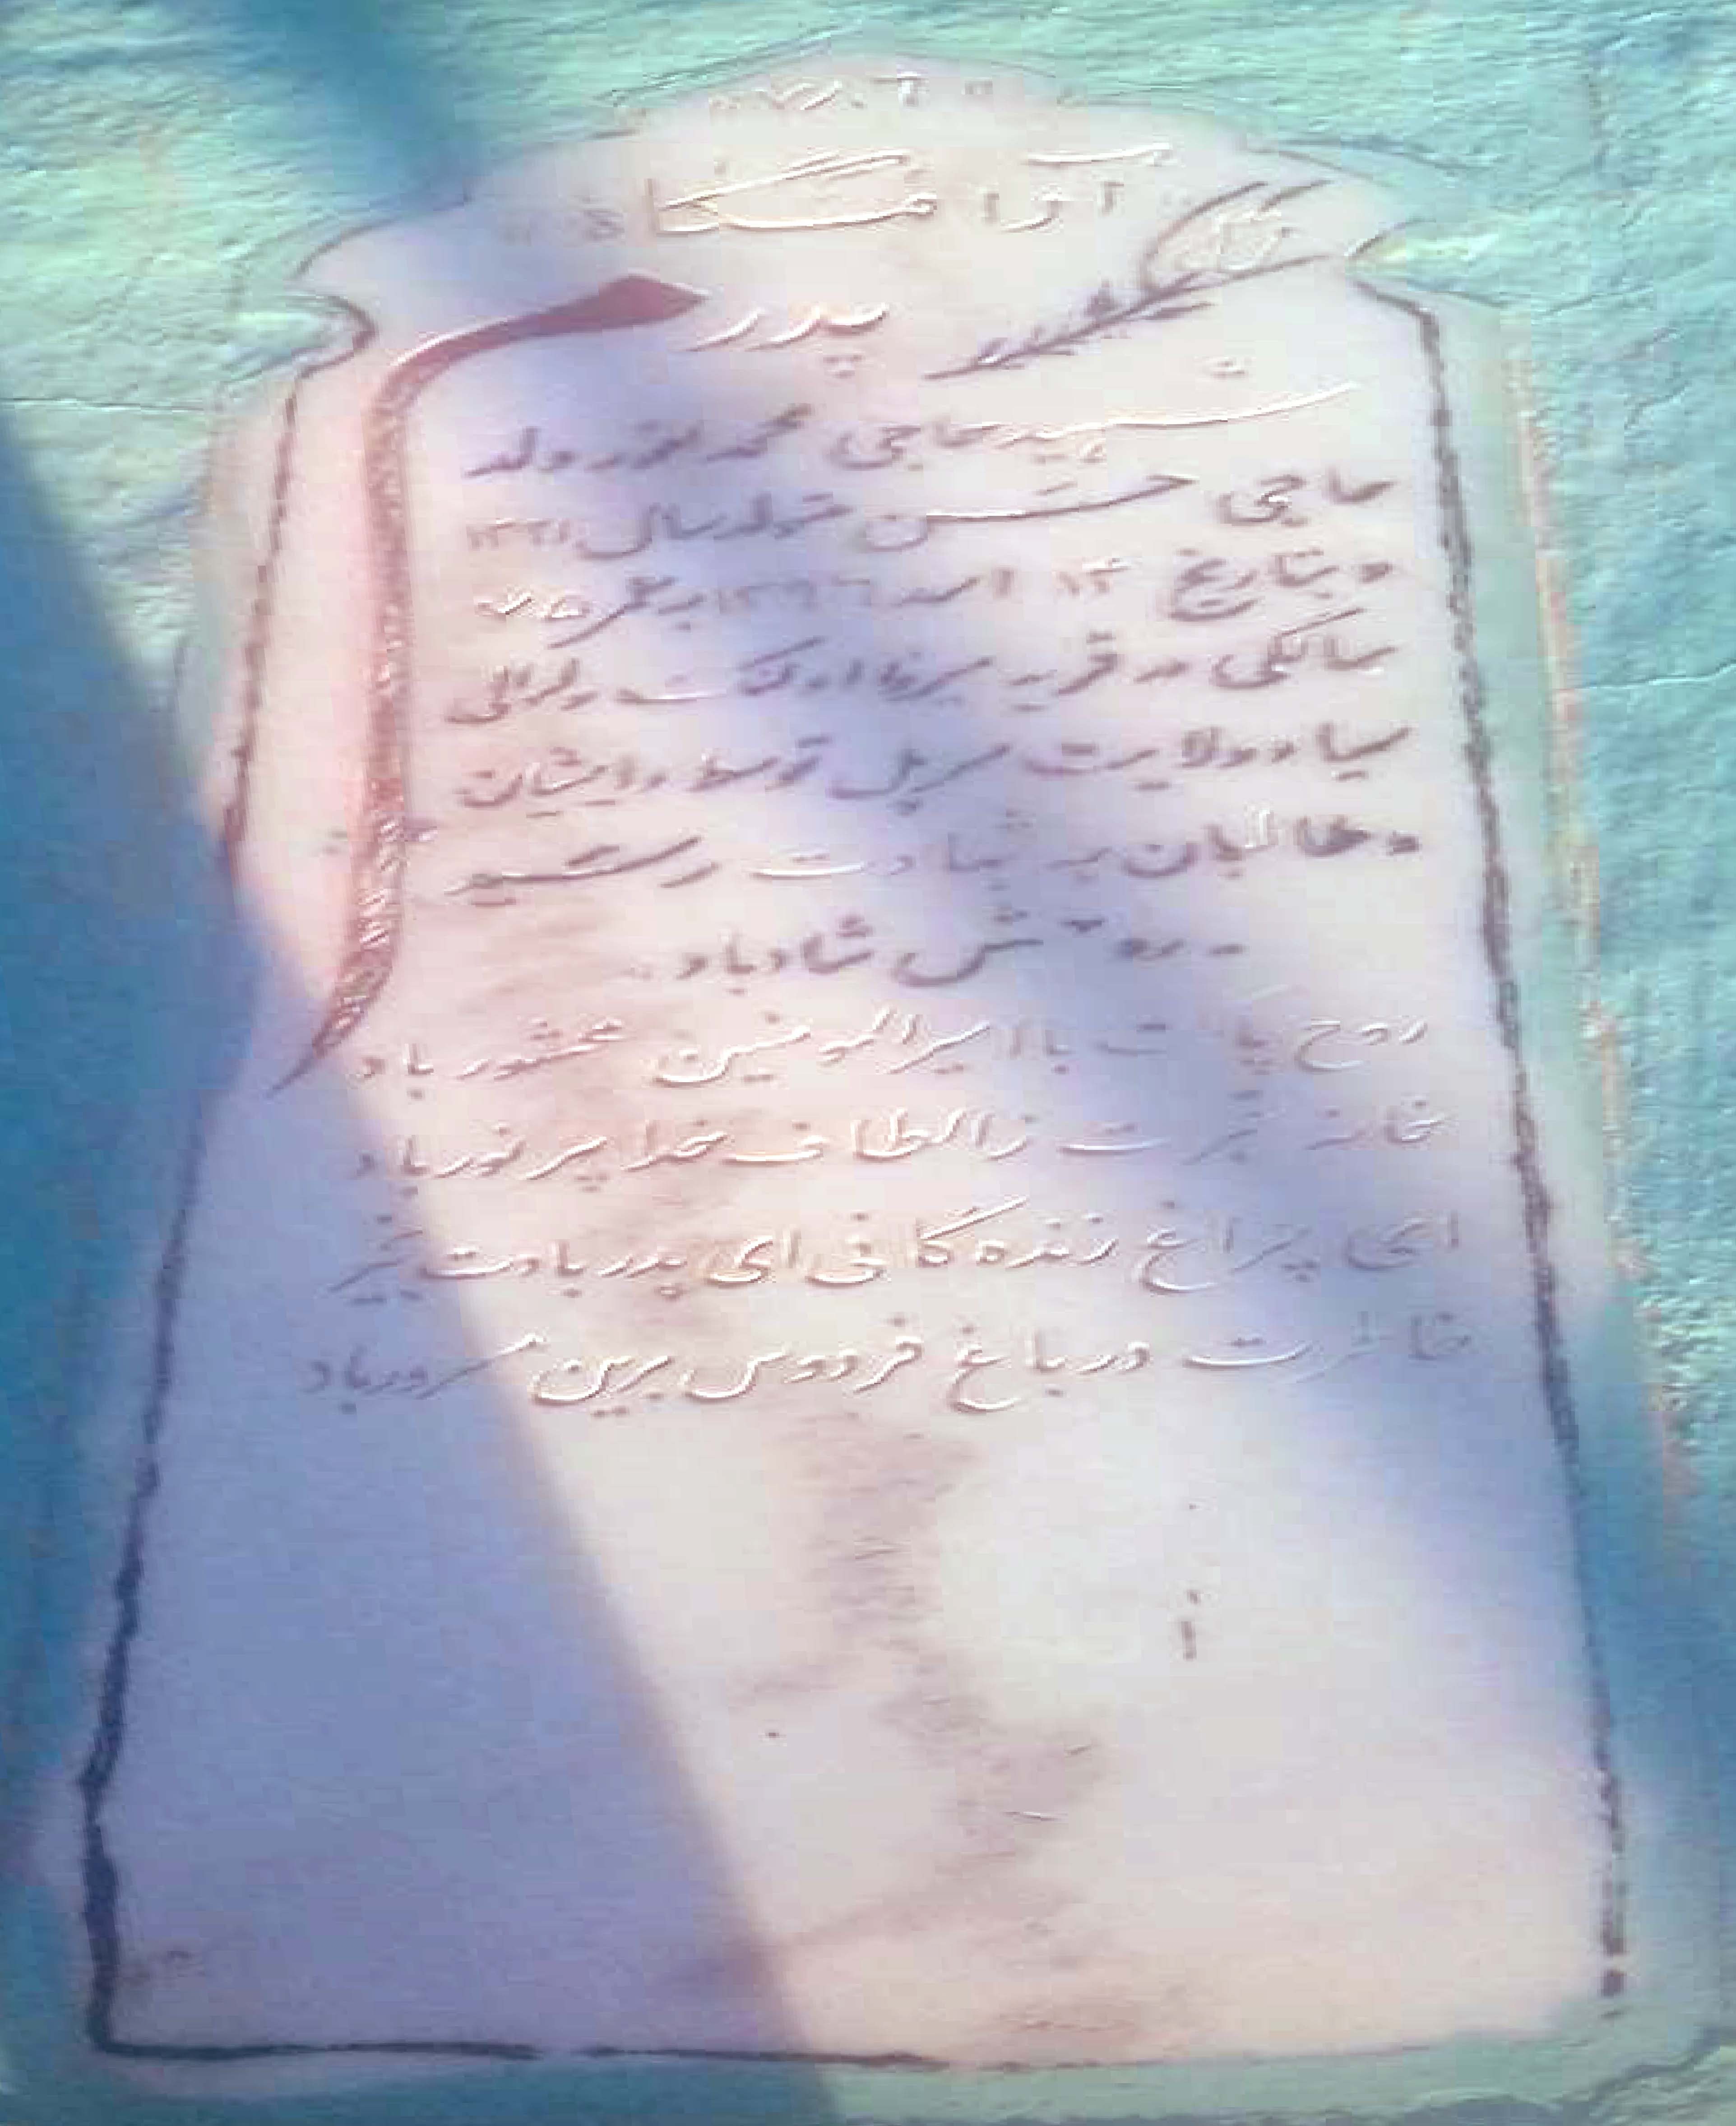 آرامگاه
پدر
شهید حاجی محمد ولد
حاجی حسن متولد سال ۱۳۲۱
و بتاریخ ۱۴ اسد ۱۳۹۶ به عمر ۷۵
سالگی در قریه میرزا اولنگ ولسوالی
صیاد ولایت سرپل توسط داعشیان
و طالبان به شهادت رسید
روحش شاد باد
روح پاکت با امیرالمومنین محشور باد
خانه قبرت ز الطاف خدا پر نور باد
ای چراغ زنده گانی ای پدر یادت بخیر
خاطرت در باغ فردوس برین مسرور باد